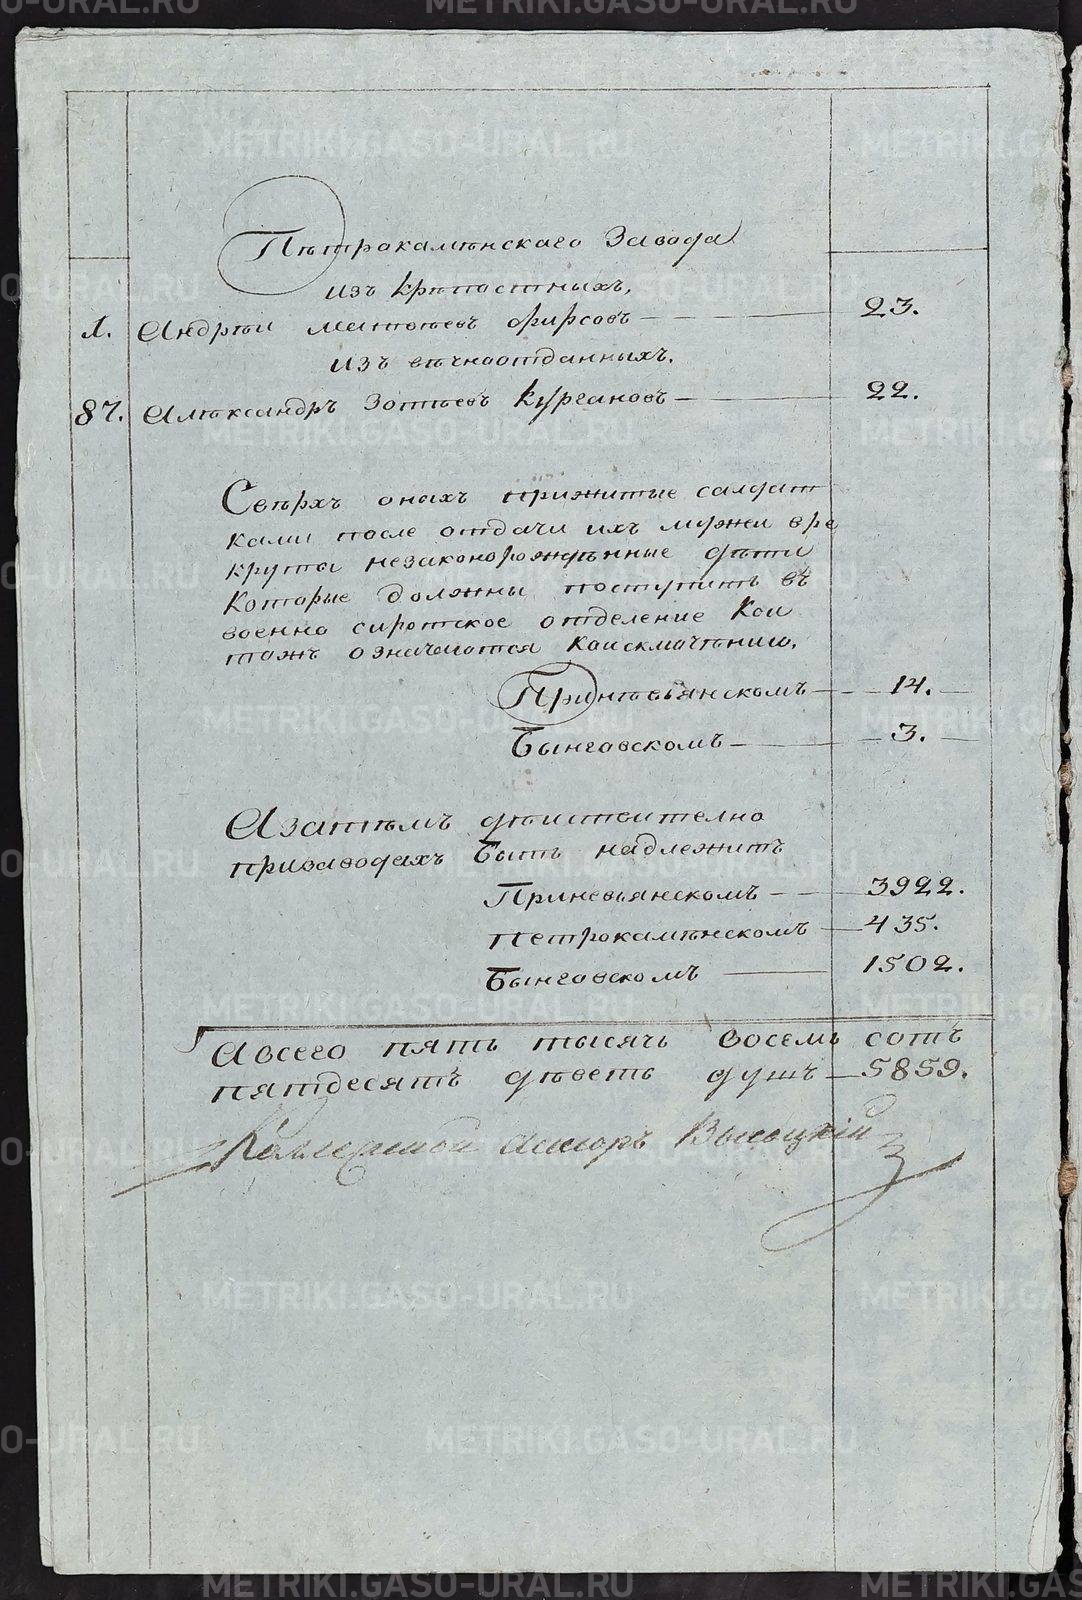 METRIKI.GASO-URAL.RU
Пѣтрокамѣнскаго Завода
изъ крѣпостныхъ,
1. Андрѣи матвѣевъ фирсовъ — 23.
изъ вѣчноотданныхъ.
87. Алѣксандръ Зотѣевъ Кургановъ — 22.
Свѣрхъ оныхъ прижитые салдат
ками после отдачи ихъ мужеи вре
круты незаконорождѣнные дѣти
Которые должны поступить въ
военно сиротское отделение Кои
такъ означаются Каисключѣнию,
Принѣвьянскомъ — 14.
Бынговскомъ — 3.
Азатѣмъ дѣиствително
призаводахъ быть надлежитъ
Приневьянскомъ — 3922.
Петрокамѣнскомъ — 435.
Бынговскомъ — 1502.
Авсего пять тысячь восемь сотъ
пятдесятъ дѣветь душъ — 5859.
Колежской